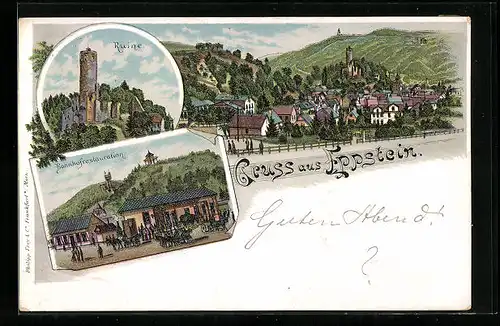 Ruine.
Bahnhofrestauration
Gruss aus Eppstein.
Guten Abend.
?
Philipp Frey & Co. Frankfurt a. Main.